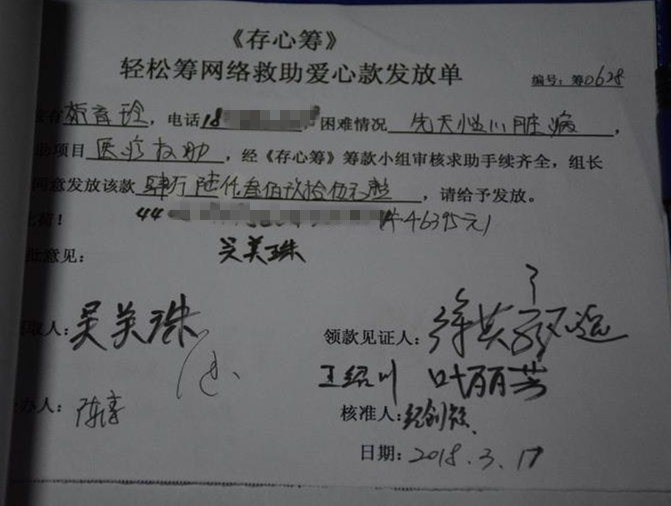 《存心筹》
轻松筹网络救助爱心款发放单
编号:筹0628
电话18 困难情况 先天性心脏病,
项目医疗救助,经《存心筹》筹款小组审核求助手续齐全,组长
同意发放该款肆万陆仟叁佰玖拾伍元整,请给予发放。
44 46395元
意见: 吴美珠
取人:吴美珠 领款见证人:
王绍川 叶丽芳
办人: 核准人:
日期:2018.3.17